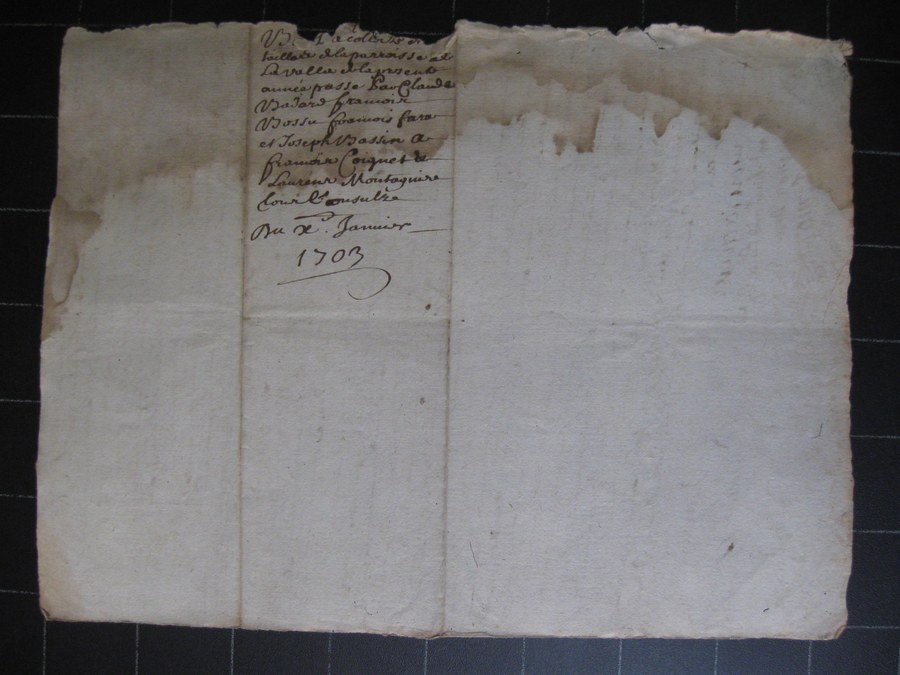 a collecte
taillate de la parroisse de
La valla de la presente
année passe Par Claude
Badard francois
Bossu francois fara
et Joseph Bassin A
francois Coignet &
Laurens Montagnire
Leur Consulz
Du xe. Janvier
1703